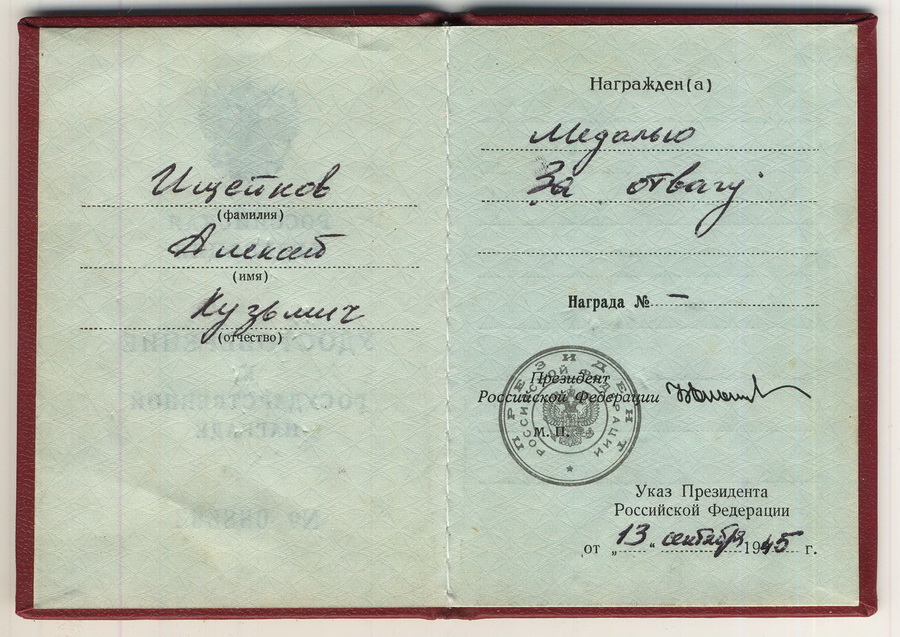 Ищейков
(фамилия)
Алексей
(имя)
Кузьмич
(отчество)
Награжден(а)
Медалью
За отвагу
Награда № –
Президент
Российской Федерации
М. П.
ПРЕЗИДЕНТ
РОССИЙСКОЙ ФЕДЕРАЦИИ
Указ Президента
Российской Федерации
от „13“ сентября 1945 г.